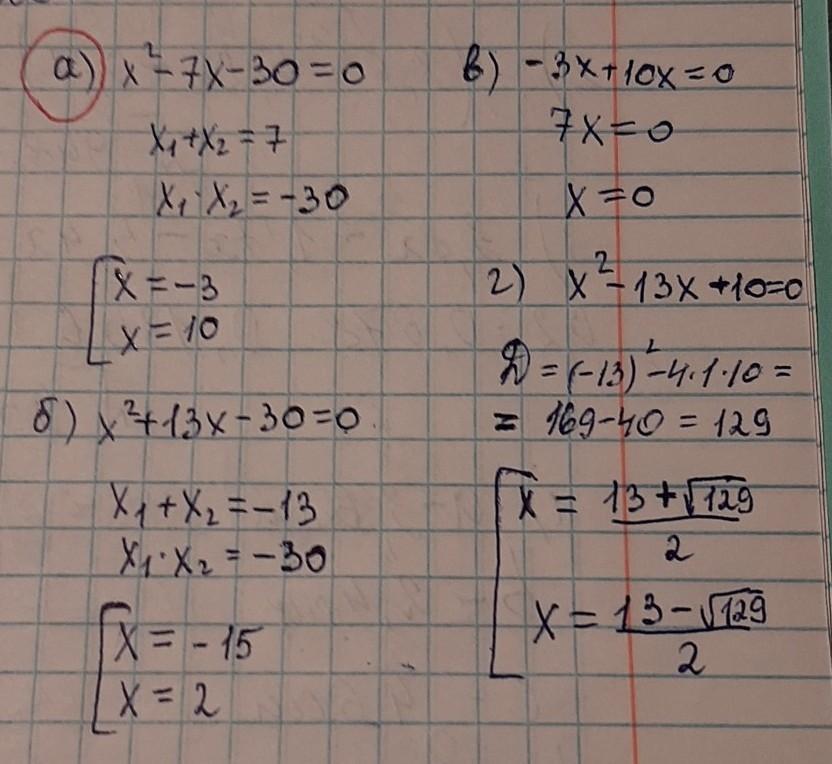 а) x²-7x-30=0
x₁+x₂=7
x₁·x₂=-30
x=-3
x=10
б) x²+13x-30=0
x₁+x₂=-13
x₁·x₂=-30
x=-15
x=2
в) -3x+10x=0
7x=0
x=0
г) x²-13x+10=0
D=(-13)²-4·1·10=
=169-40=129
x=(13+√129)/2
x=(13-√129)/2